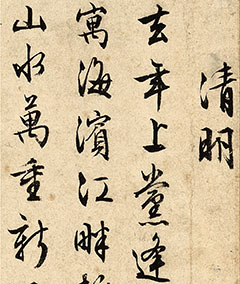 清明
去年上黨逢
寓海濱江畔
山水萬重新